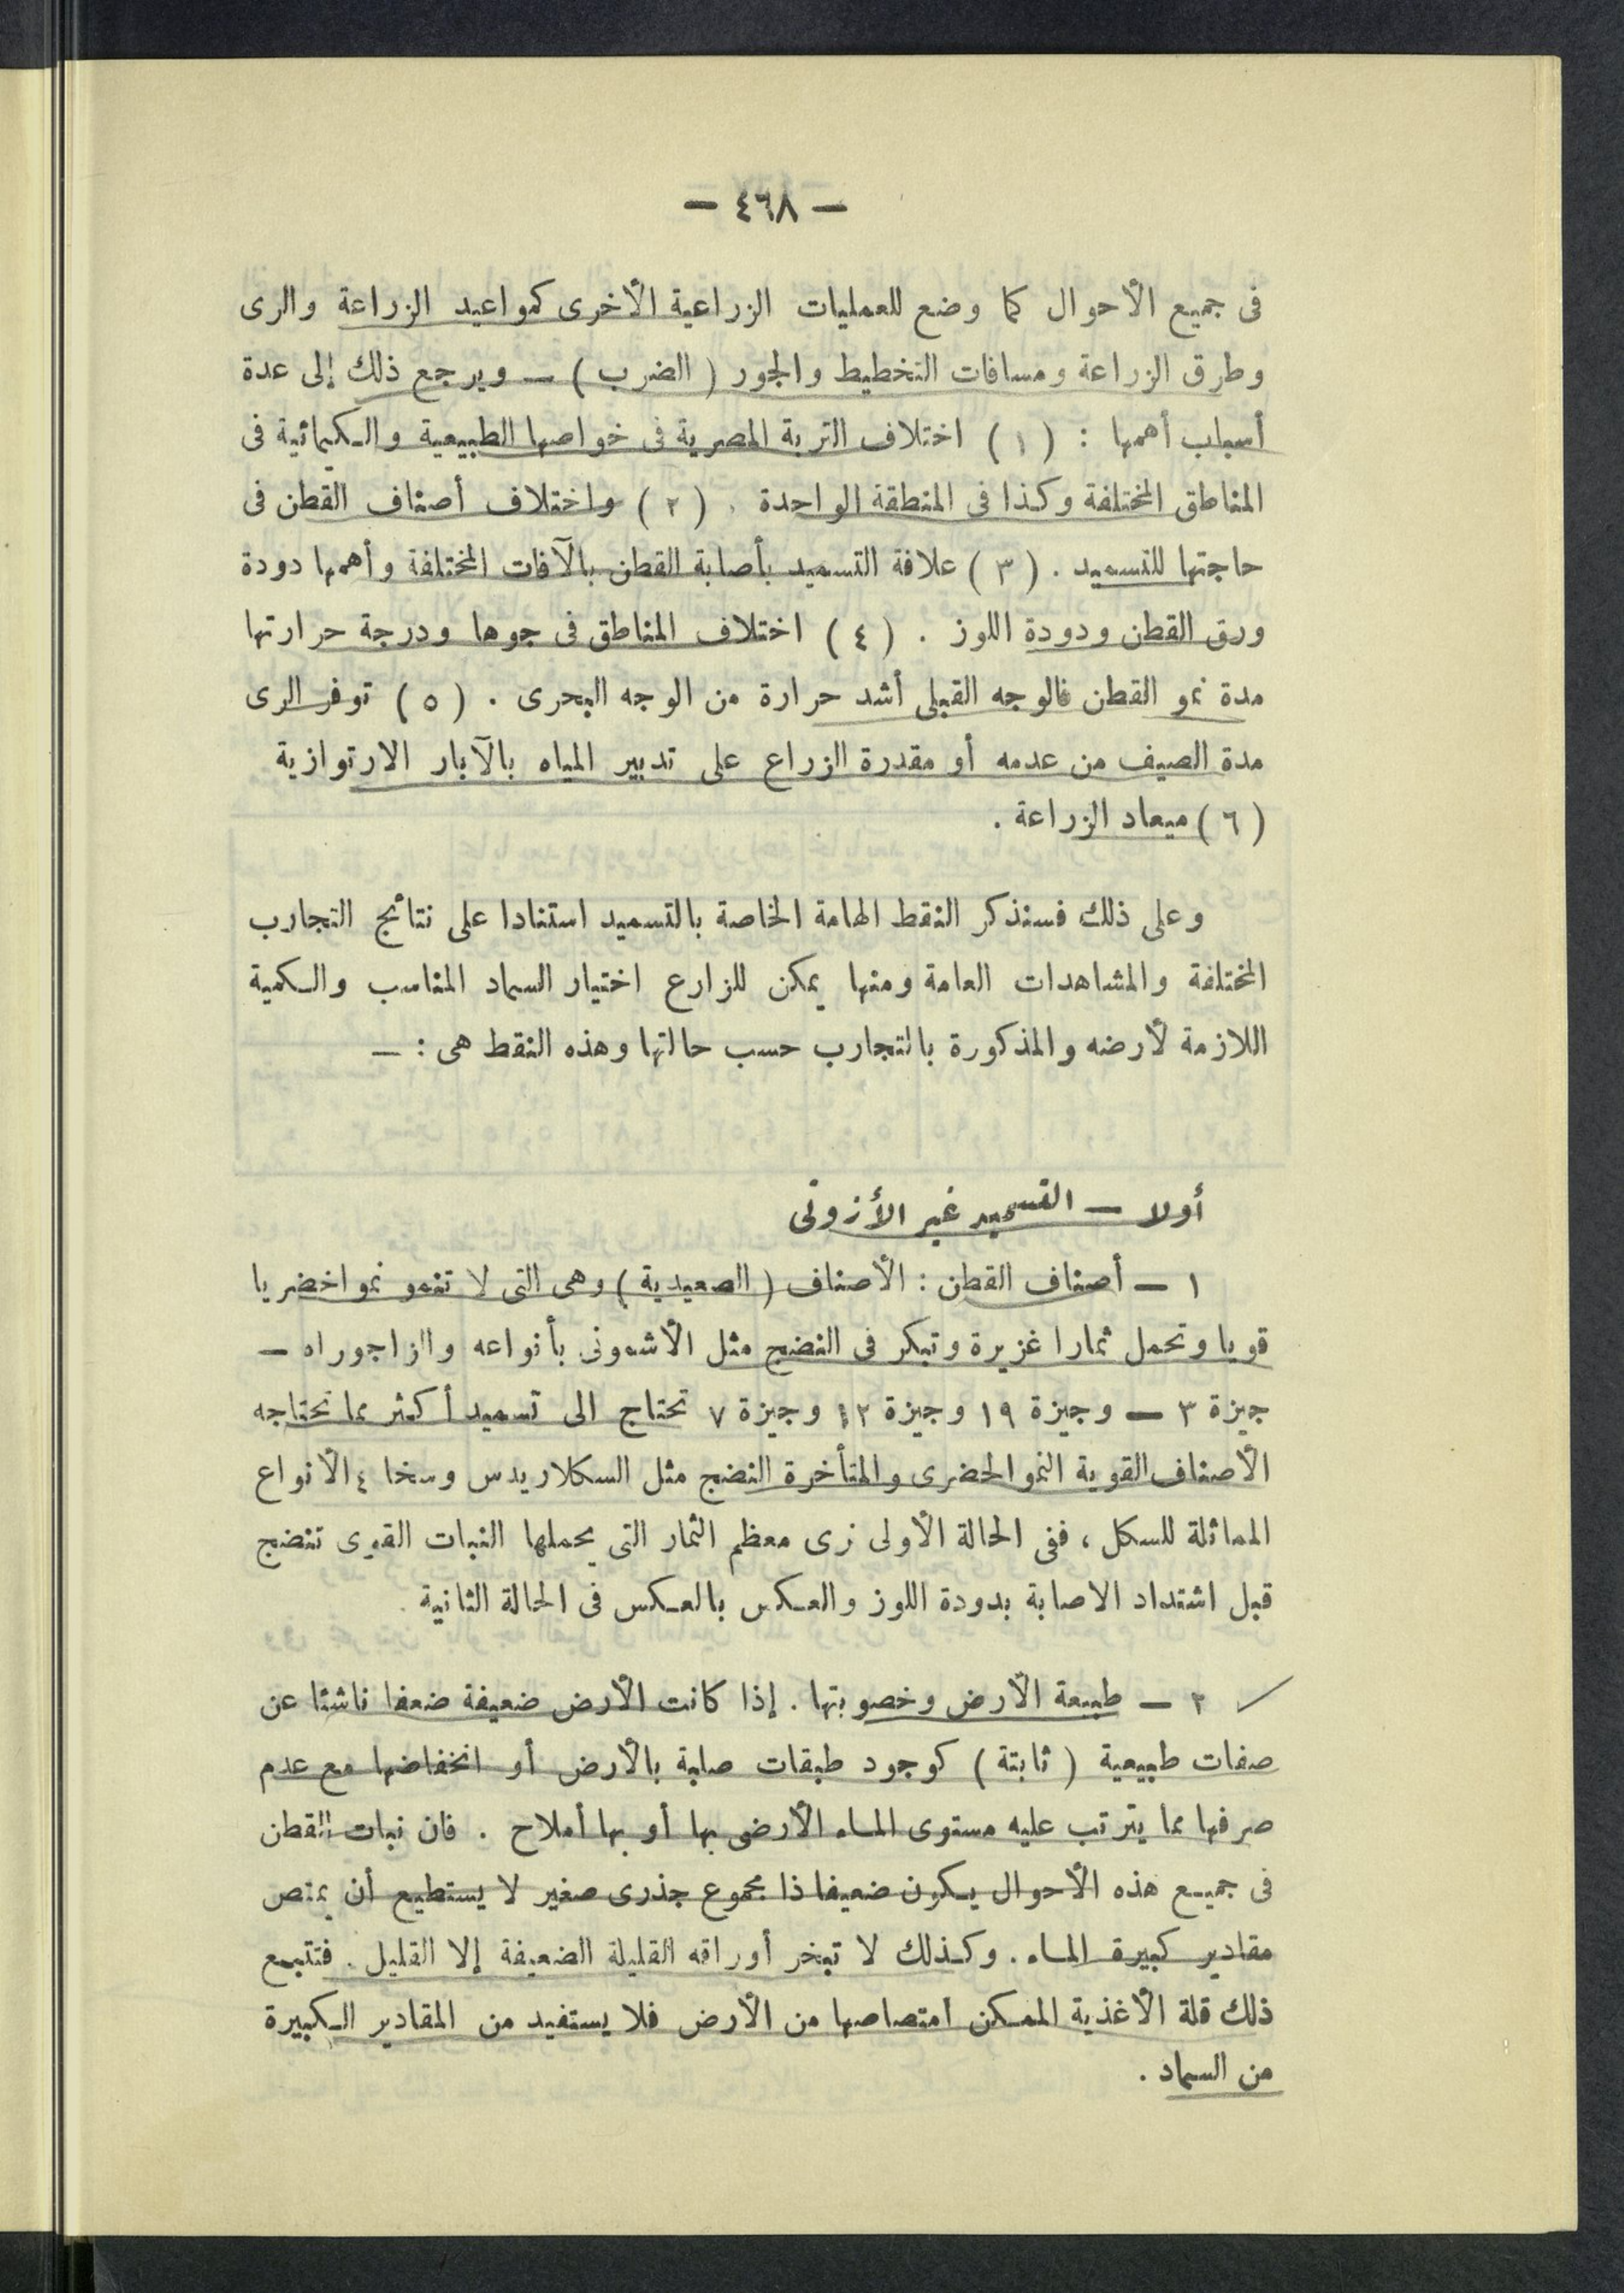 — ٤٦٨ —
فى جميع الأحوال كما وضع للعمليات الزراعية الأخرى كمواعيد الزراعة والرى
وطرق الزراعة ومسافات التخطيط والجور ( الضرب ) — ويرجع ذلك إلى عدة
أسباب أهمها : ( ١ ) اختلاف التربة المصرية فى خواصها الطبيعية والكيمائية فى
المناطق المختلفة وكذا فى المنطقة الواحدة . ( ٢ ) واختلاف أصناف القطن فى
حاجتها للتسميد . ( ٣ ) علاقة التسميد بأصابة القطن بالآفات المختلفة وأهمها دودة
ورق القطن ودودة اللوز . ( ٤ ) اختلاف المناطق فى جوها ودرجة حرارتها
مدة نمو القطن فالوجه القبلى أشد حرارة من الوجه البحرى . ( ٥ ) توفر الرى
مدة الصيف من عدمه أو مقدرة الزراع على تدبير المياه بالآبار الارتوازية
( ٦ ) ميعاد الزراعة .
وعلى ذلك فسنذكر النقط الهامة الخاصة بالتسميد استنادا على نتائج التجارب
المختلفة والمشاهدات العامة ومنها يمكن للزارع اختيار السماد المناسب والكمية
اللازمة لأرضه والمذكورة بالتجارب حسب حالتها وهذه النقط هى : —
أولا — التسميد غير الأزوتى
١ — أصناف القطن : الأصناف ( الصعيدية ) وهى التى لا تنمو نموا خضريا
قويا وتحمل ثمارا غزيرة وتبكر فى النضج مثل الأشمونى بأنواعه والزاجوراه —
جيزة ٣ — وجيزة ١٩ وجيزة ١٢ وجيزة ٧ تحتاج الى تسميد أكثر مما تحتاجه
الأصناف القوية النمو الخضرى والمتأخرة النضج مثل السكلاريدس وسخا ٤ الأنواع
المماثلة للسكل ، ففى الحالة الأولى نرى معظم الثمار التى يحملها النبات القوى تنضج
قبل اشتداد الاصابة بدودة اللوز والعكس بالعكس فى الحالة الثانية .
٢ — طبيعة الأرض وخصوبتها . إذا كانت الأرض ضعيفة ضعفا ناشئا عن
صفات طبيعية ( ثابتة ) كوجود طبقات صلبة بالأرض أو انخفاضها مع عدم
صرفها مما يترتب عليه مستوى الماء الأرضى بها أو بها أملاح . فان نبات القطن
فى جميع هذه الأحوال يكون ضعيفا ذا مجموع جذرى صغير لا يستطيع أن يمتص
مقادير كبيرة الماء . وكذلك لا تبخر أوراقه القليلة الضعيفة إلا القليل . فتتبع
ذلك قلة الأغذية الممكن امتصاصها من الأرض فلا يستفيد من المقادير الكبيرة
من السماد .